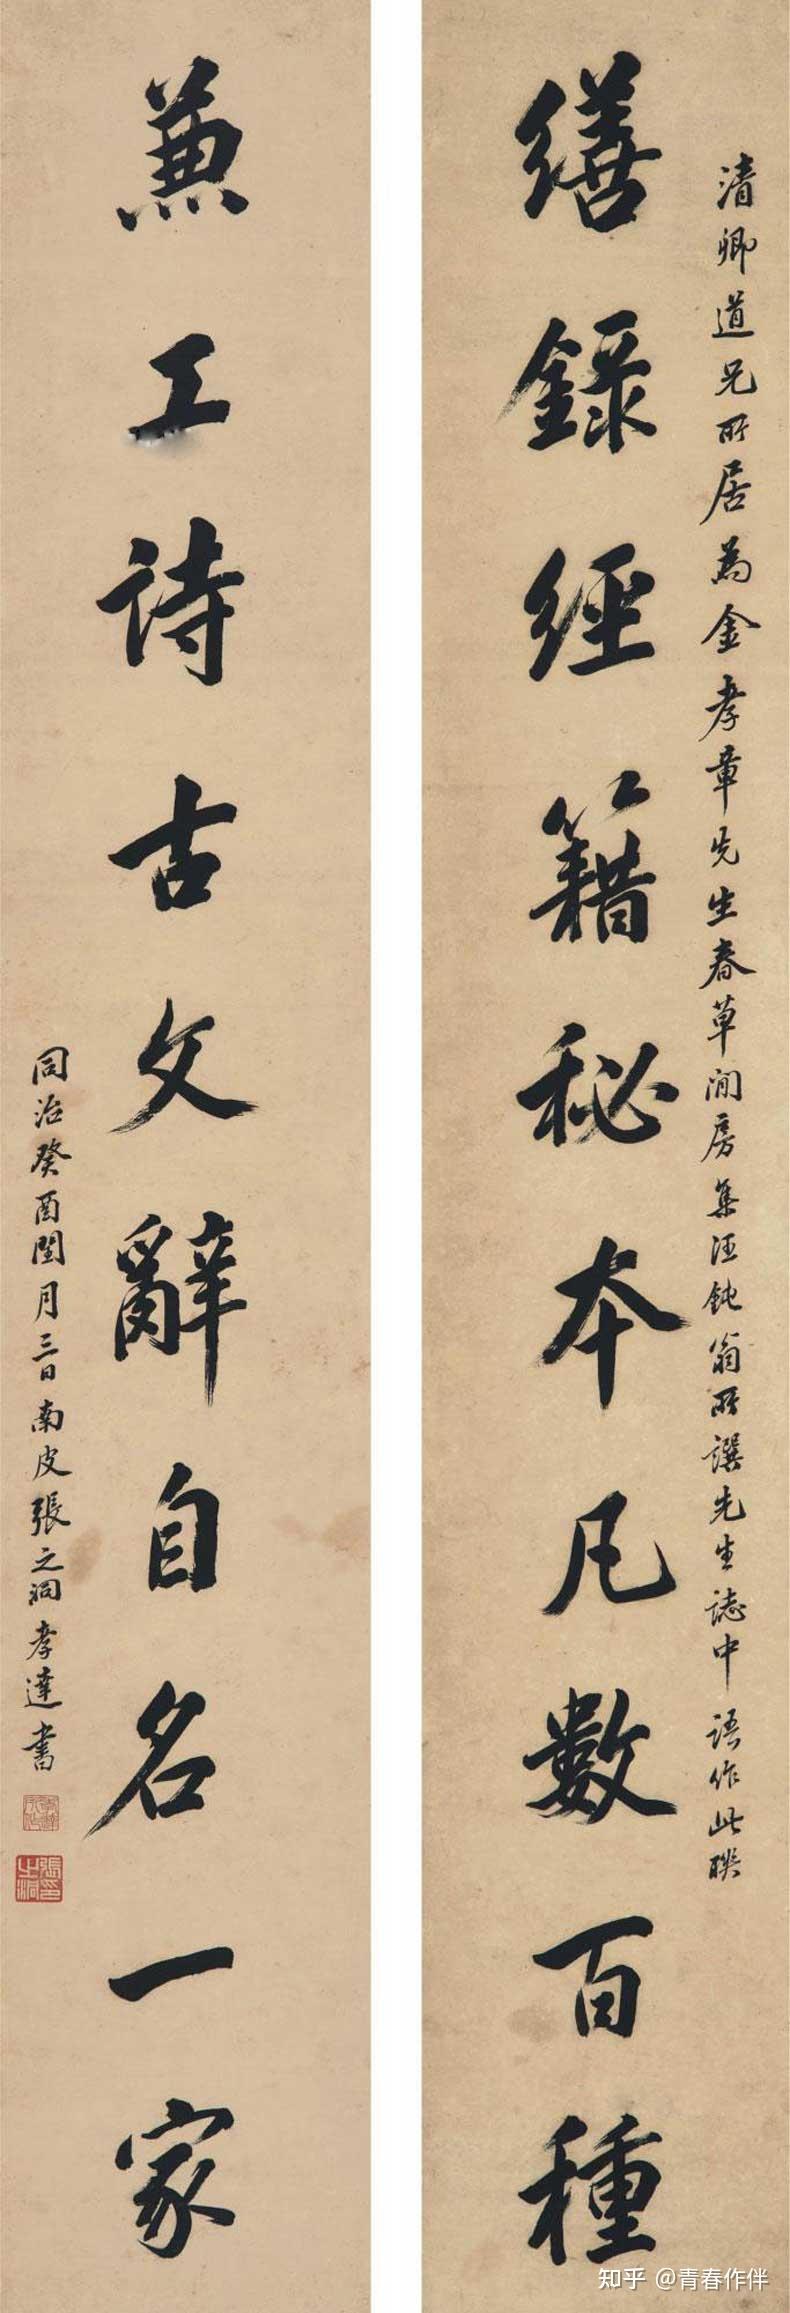 清卿道兄所居為金孝章先生春草閒房集汪鈍翁所譔先生誌中語作此聯
繕錄經籍秘本凡數百種
兼工詩古文辭自名一家
同治癸酉閏月三日南皮張之洞孝達書
張之洞印
知乎 @青春作伴